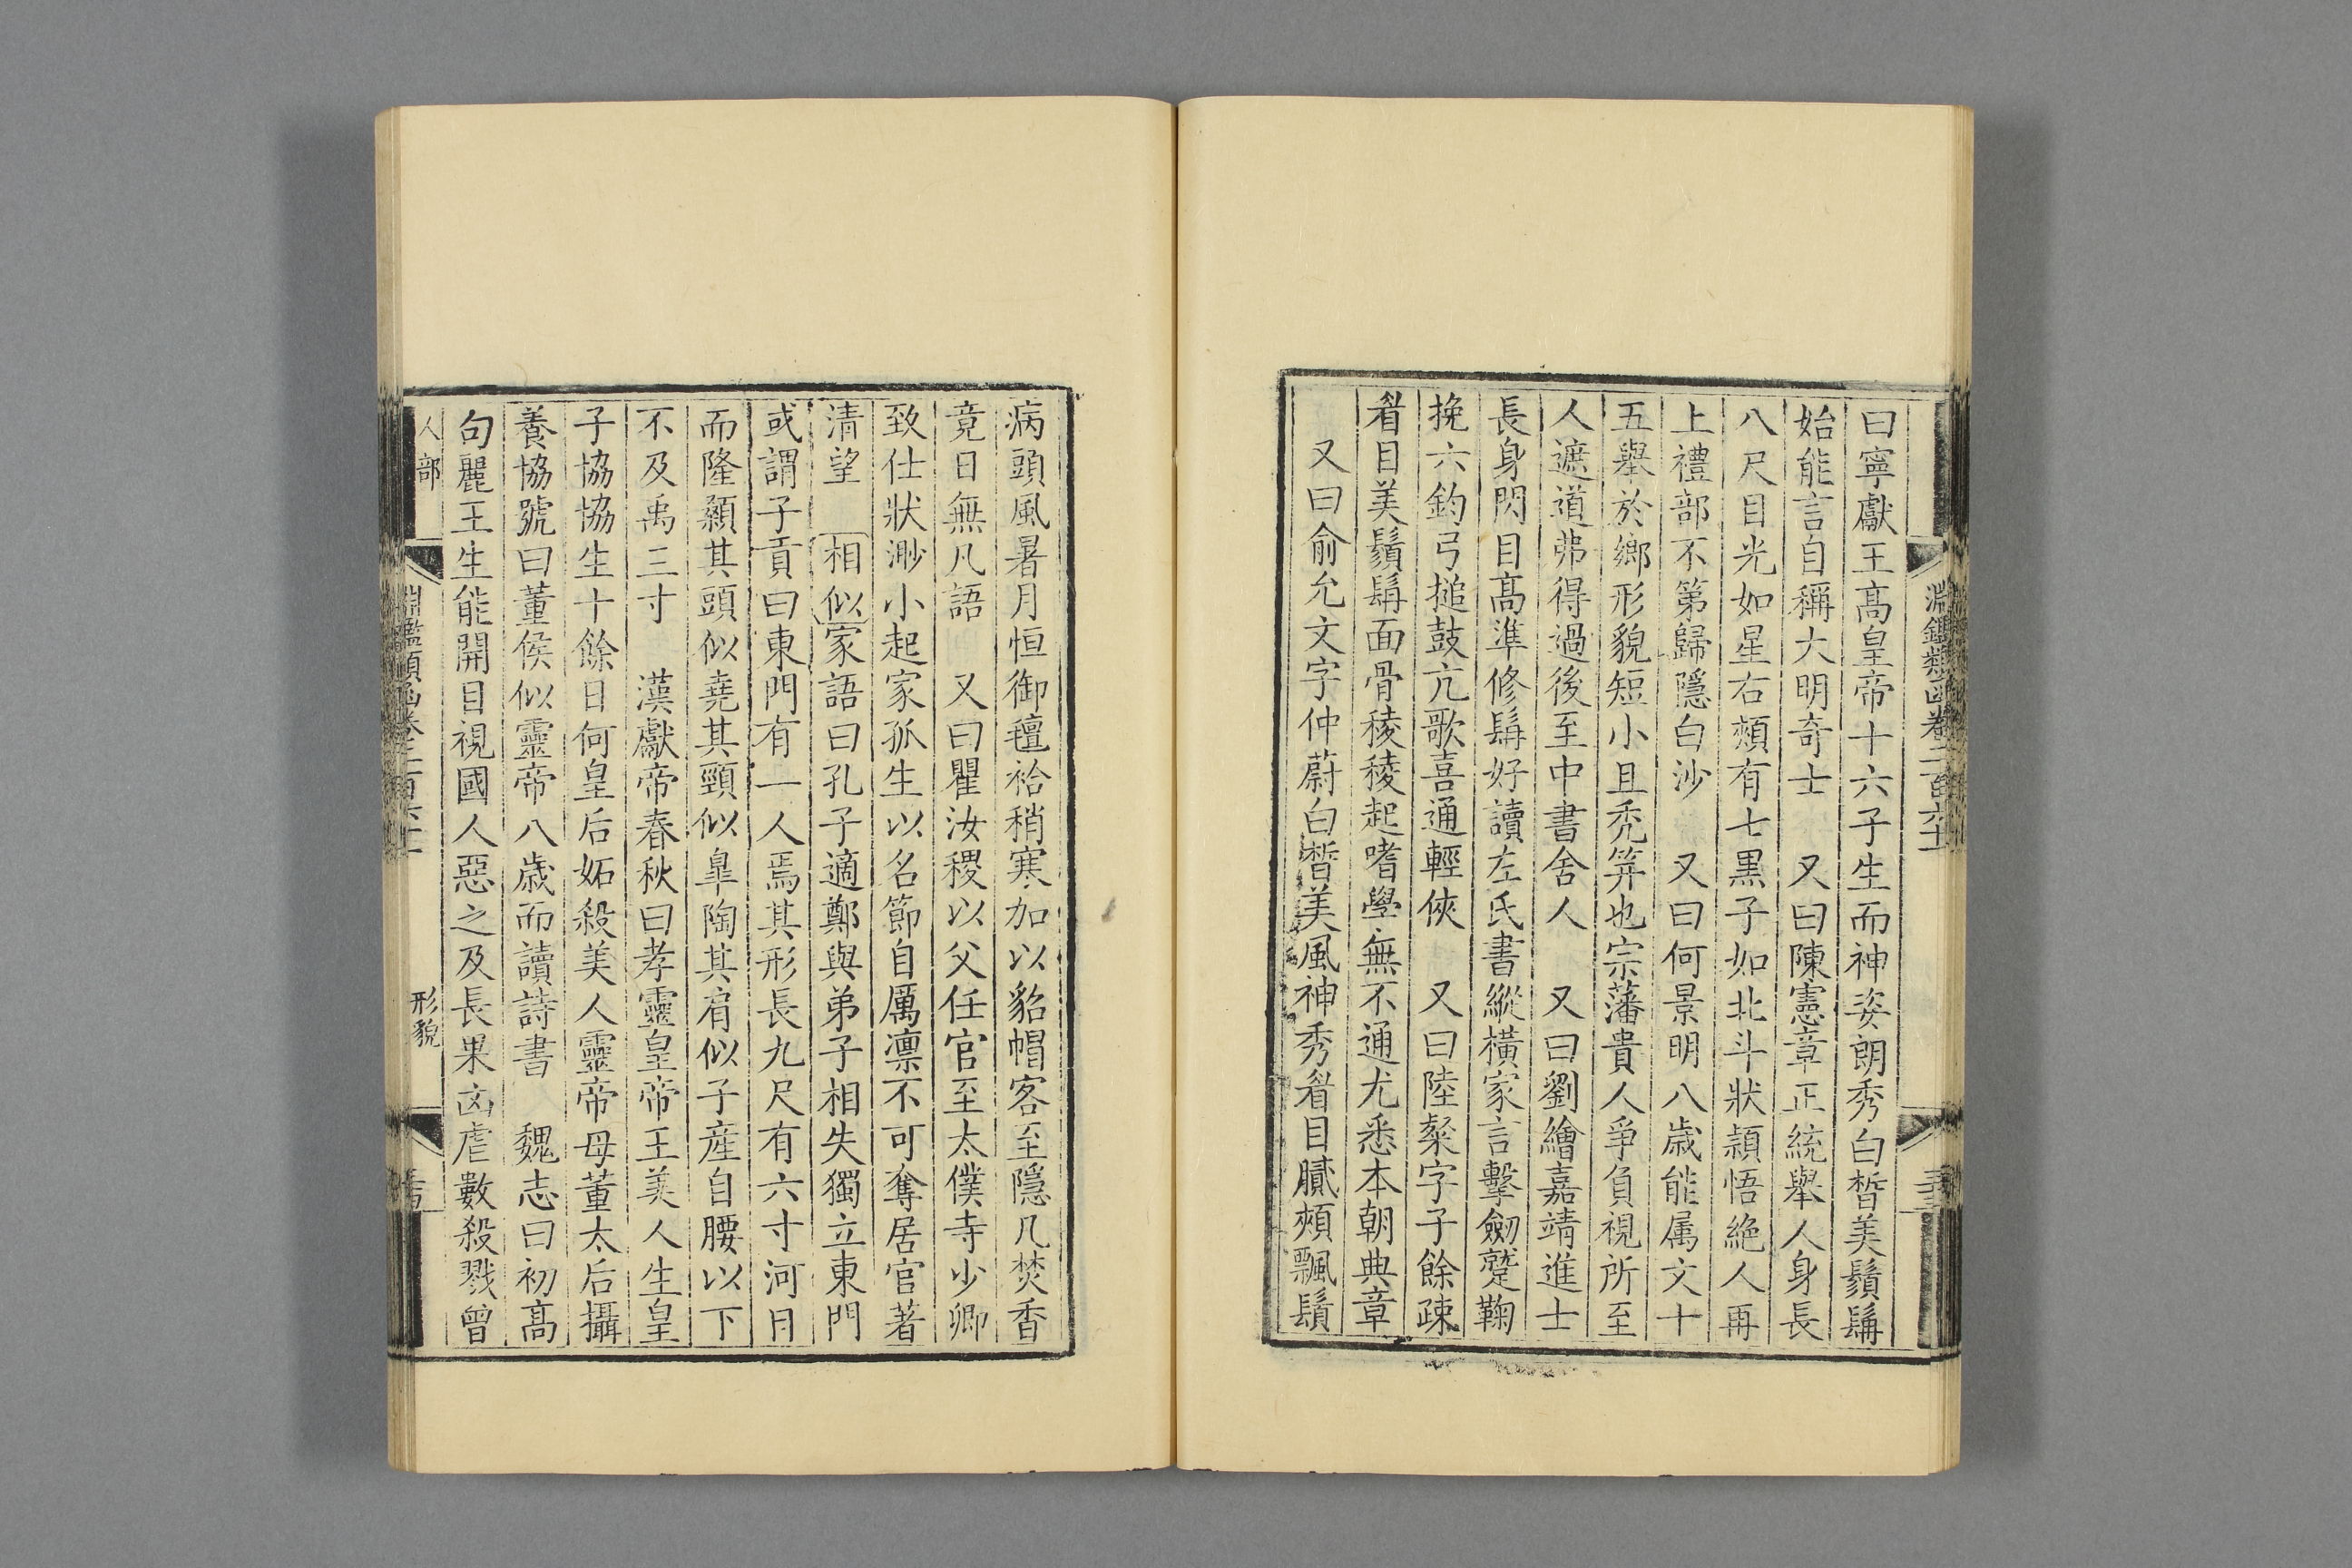 淵鑑類函卷二百六十
曰寧獻王髙皇帝十六子生而神姿朗秀白晳美鬚髯
始能言自稱大明奇士　又曰陳憲章正統舉人身長
八尺目光如星右頰有七黒子如北斗狀頴悟絶人再
上禮部不第歸隱白沙　又曰何景明八歳能属文十
五舉於鄉形貌短小且禿筓也宗藩貴人爭負視所至
人遮道弗得過後至中書舍人　又曰劉繪嘉靖進士
長身閃目髙準修髯好讀左氏書縱横家言擊劒蹵鞠
挽六鈞弓搥鼓亢歌喜通輕俠　又曰陸粲字子餘疎
眉目美鬚髯面骨稜稜起嗜學無不通尤悉本朝典章
又曰俞允文字仲蔚白晳美風神秀眉目膩頰飄鬚
病頭風暑月恒御氊袷稍寒加以貂帽客至隱几焚香
竟日無凡語　又曰瞿汝稷以父任官至太僕寺少卿
致仕狀渺小起家孤生以名節自厲凛不可奪居官著
清望　相似家語曰孔子適鄭與弟子相失獨立東門
或謂子貢曰東門有一人焉其形長九尺有六寸河目
而隆顙其頭似堯其頸似臯陶其肩似子産自腰以下
不及禹三寸　漢獻帝春秋曰孝靈皇帝王美人生皇
子協協生十餘日何皇后妬殺美人靈帝母董太后攝
養協號曰董侯似靈帝八歳而讀詩書　魏志曰初髙
句麗王生能開目視國人惡之及長果凶虐數殺戮曾
人部
淵鑑類函卷二百六十
形貌